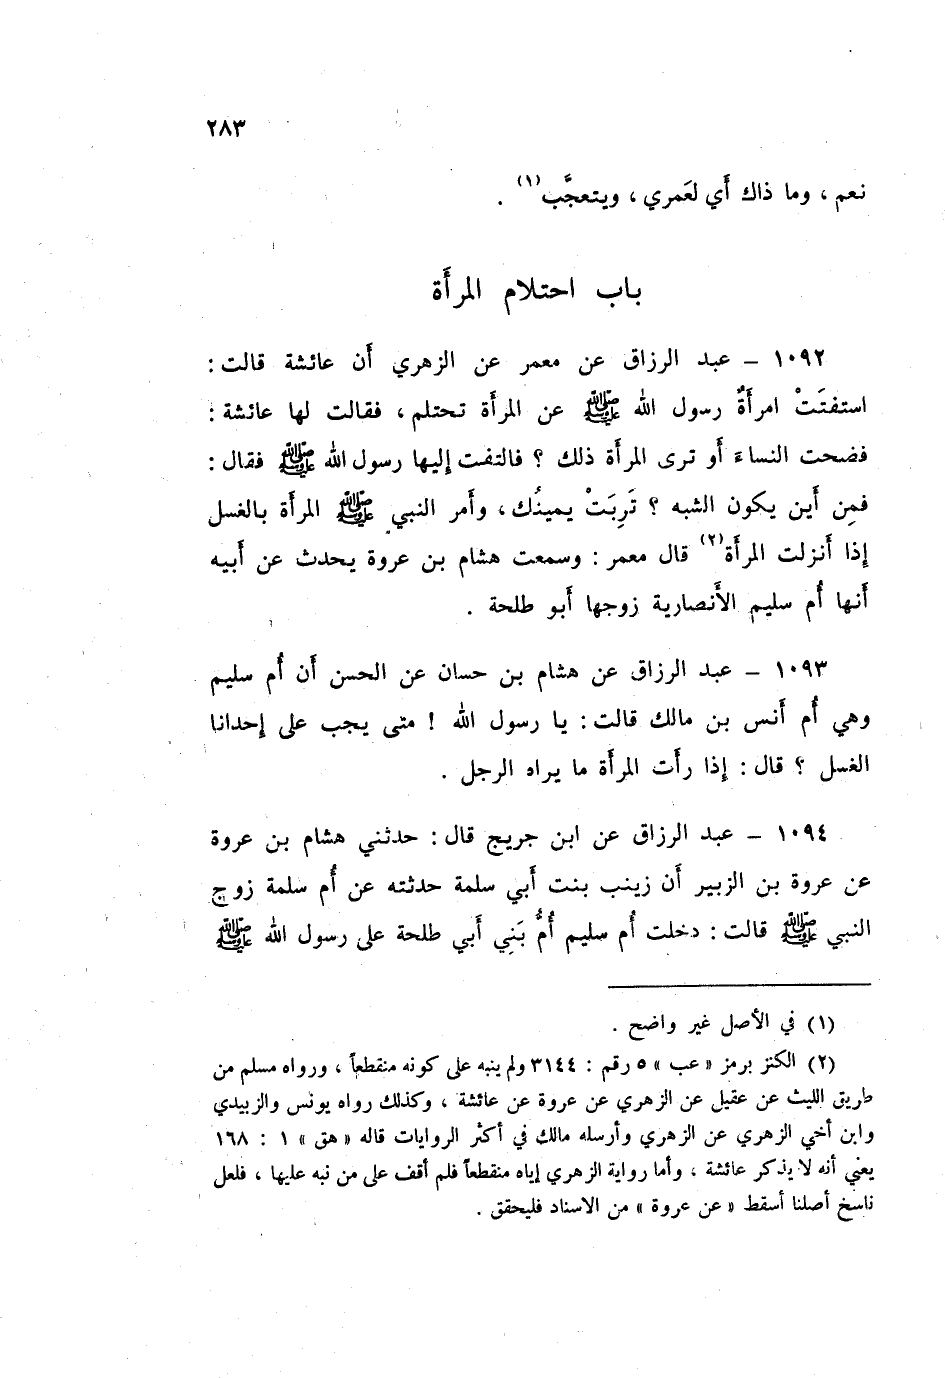 ٢٨٣
نعم ، وما ذاك أَي لعَمري ، ويتعجَّب(١) .
باب احتلام المرأَة
١٠٩٢ – عبد الرزاق عن معمر عن الزهري أَن عائشة قالت :
استفتَتْ امرأَةٌ رسول الله ﷺ عن المرأَة تحتلم ، فقالت لها عائشة :
فضحت النساءَ أَو ترى المرأَة ذلك ؟ فالتفت إِليها رسول الله ﷺ فقال :
فمِن أَين يكون الشبه ؟ تَرِبَتْ يمينُك ، وأَمر النبي ﷺ المرأَة بالغسل
إِذا أَنزلت المرأَة(٢) قال معمر : وسمعت هشام بن عروة يحدث عن أَبيه
أَنها أُم سليم الأَنصارية زوجها أَبو طلحة .
١٠٩٣ – عبد الرزاق عن هشام بن حسان عن الحسن أَن أُم سليم
وهي أُم أَنس بن مالك قالت : يا رسول الله ! متى يجب على إِحدانا
الغسل ؟ قال : إِذا رأَت المرأَة ما يراه الرجل .
١٠٩٤ – عبد الرزاق عن ابن جريج قال : حدثني هشام بن عروة
عن عروة بن الزبير أَن زينب بنت أَبي سلمة حدثته عن أُم سلمة زوج
النبي ﷺ قالت : دخلت أُم سليم أُمُّ بَنِي أَبي طلحة على رسول الله ﷺ
(١) في الأصل غير واضح .
(٢) الكنز برمز « عب » ٥ رقم : ٣١٤٤ ولم ينبه على كونه منقطعاً ، ورواه مسلم من
طريق الليث عن عقيل عن الزهري عن عروة عن عائشة ، وكذلك رواه يونس والزبيدي
وابن أخي الزهري عن الزهري وأرسله مالك في أكثر الروايات قاله « هق » ١ : ١٦٨
يعني أنه لا يذكر عائشة ، وأما رواية الزهري إياه منقطعاً فلم أقف على من نبه عليها ، فلعل
ناسخ أصلنا أسقط « عن عروة » من الاسناد فليحقق .